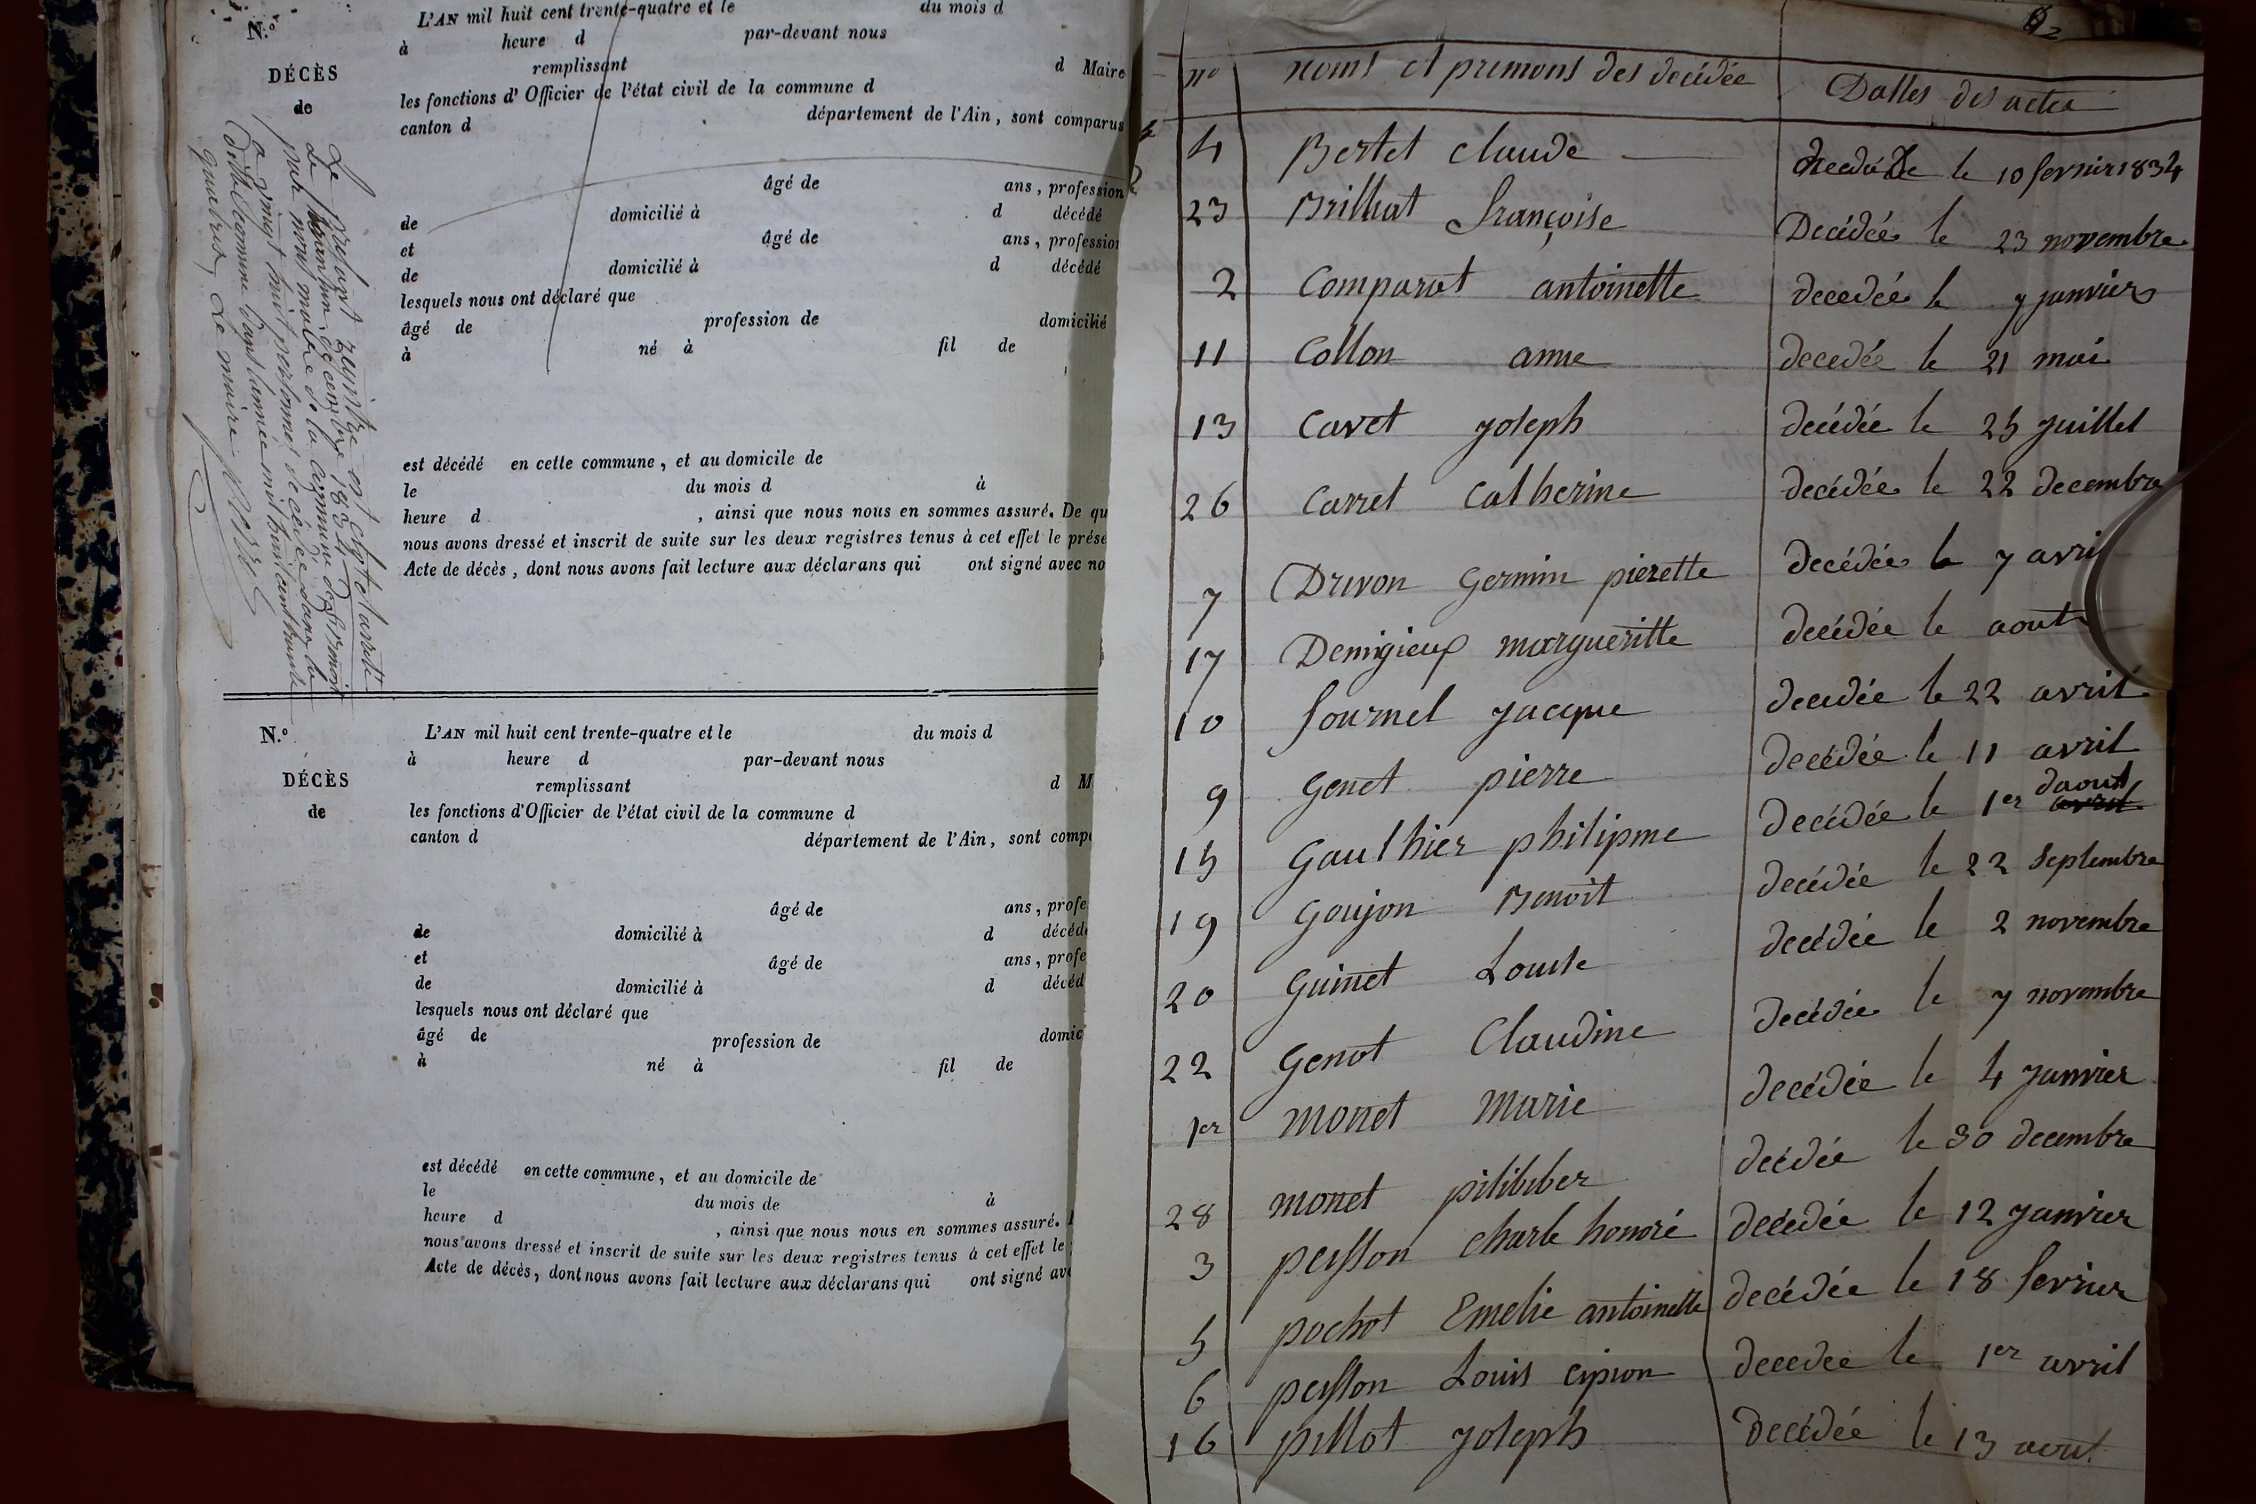 N.°
DÉCÈS
de
L'AN mil huit cent trente-quatre et le du mois d
à heure d par-devant nous
remplissant d Maire
les fonctions d'Officier de l'état civil de la commune d
canton d département de l'Ain, sont comparus
âgé de ans, profession
de domicilié à d décédé
et âgé de ans, profession
de domicilié à d décédé
lesquels nous ont déclaré que
âgé de profession de domicilié
à né à fil de
est décédé en cette commune, et au domicile de
le du mois d à
heure d , ainsi que nous nous en sommes assuré. De qu
nous avons dressé et inscrit de suite sur les deux registres tenus à cet effet le prése
Acte de décès, dont nous avons fait lecture aux déclarans qui ont signé avec no
Le présent registre est clos et arretté
Le trente un decembre 1834
par nous maire de la commune de
a vingt huit personnes décédée dans la
ditte commune dans l'année mil huit cent trente
quatres, Le maire
N.°
DÉCÈS
de
L'AN mil huit cent trente-quatre et le du mois d
à heure d par-devant nous
remplissant d M
les fonctions d'Officier de l'état civil de la commune d
canton d département de l'Ain, sont comp
âgé de ans, profe
de domicilié à d décéd
et âgé de ans, profe
de domicilié à d décéd
lesquels nous ont déclaré que
âgé de profession de domic
à né à fil de
est décédé en cette commune, et au domicile de
le du mois de à
heure d , ainsi que nous nous en sommes assuré.
nous avons dressé et inscrit de suite sur les deux registres tenus à cet effet le
Acte de décès, dont nous avons fait lecture aux déclarans qui ont signé ave
n° noms et prenons des decédée Dattes des actes
4 Bertet claude decedée le 10 fevrier 1834
23 Brilliat françoise Decédée le 23 novembre
2 Comparat antoinette decedée le 7 janvier
11 Collon anne decedée le 21 mai
13 Cavet joseph decédée le 25 juillet
26 Carret Catherine decédée le 22 decembre
7 Drivon Germin pierette decédée le 7 avri
17 Demigieux margueritte decédée le aout
10 fournel jacque decedée le 22 avril
9 Genet pierre decédée le 11 avril
15 Gaulthier philipine decédée le 1er daout avril
19 Goujon Benoit decédée le 22 septembre
20 Guinet Louise decédée le 2 novembre
22 Genot Claudine decédée le 7 novembre
1er monet marie decédée le 4 janvier
28 monet piliber decédée le 30 decembre
3 peysson charle honoré decedée le 12 janvier
5 pochot Emelie antoinette decédée le 18 fevrier
6 peysson Louis cipion decedée le 1er avril
16 pillot joseph Decédée le 13 aout